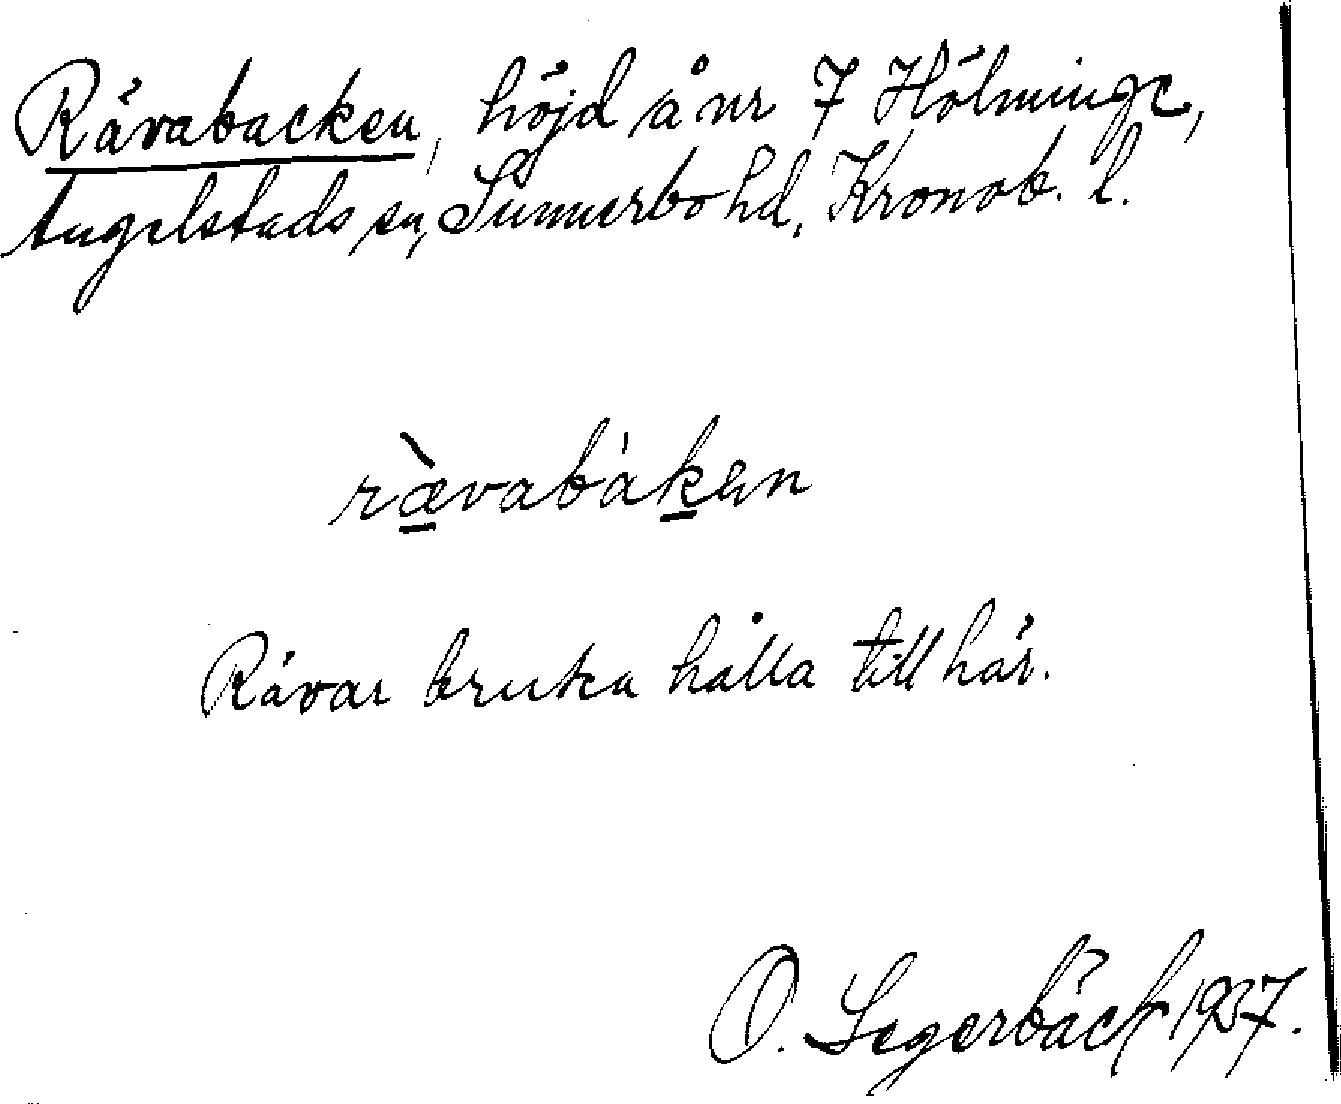 Rävabacken, höjd å nr 7 Hölminge,
Angelstads sn, Sunnerbo hd, Kronob. l.
rævabàken
Rävar bruka hålla till här.
O. Segerbäck 1937.